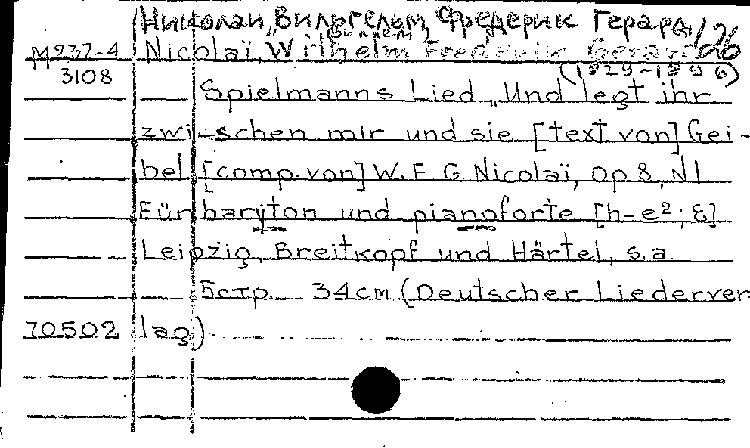 Николаи, Вильгельм, Фредерик Герард 126
М937-4 Nicolaï, Wilhelm Frederik Gerard
3108 (1829-1896)
Spielmanns Lied „Und legt ihr
zwischen mir und sie [text von] Gei-
bel [comp. von] W. F. G. Nicolaï, Op 8, N1
Für baryton und pianoforte [h-e²; E]
Leipzig, Breitkopf und Härtel, s. a.
5стр. 34cm (Deutscher Liederver
70502 lag)